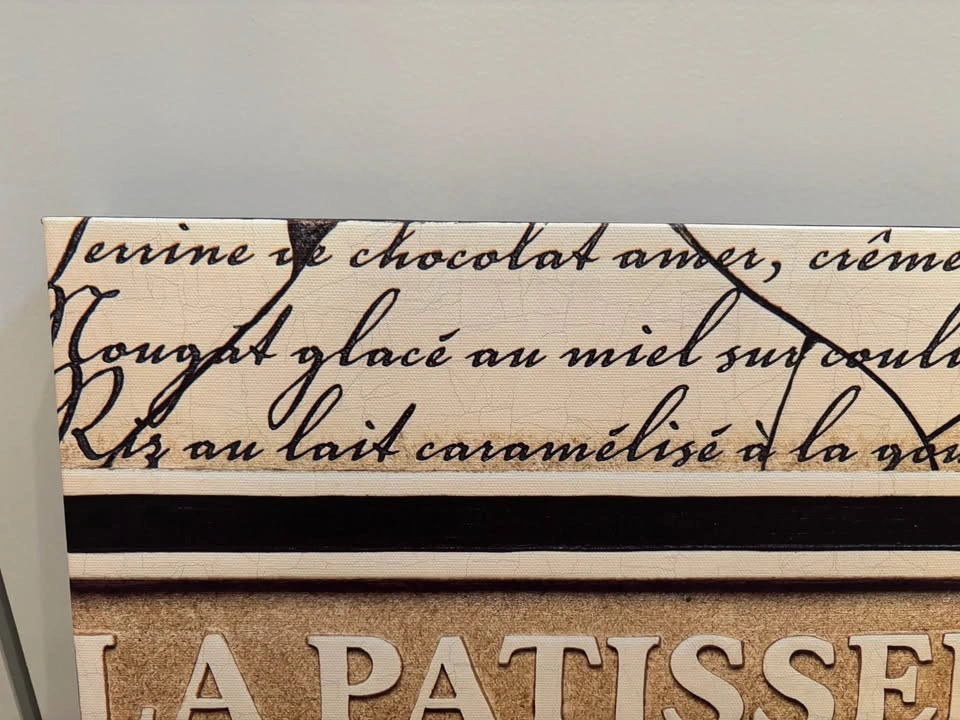 Terrine de chocolat amer, crème
Nougat glacé au miel sur couli
Riz au lait caramélisé à la gou
LA PATISSE